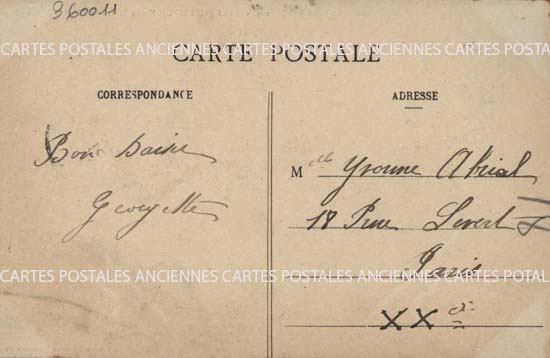 360011
CARTES POSTALES ANCIENNES CARTES POSTALES ANCIENNES CARTES POSTALES
CARTE POSTALE
CORRESPONDANCE
ADRESSE
Bon baiser
Georgette
M lle Yvonne Abrial
18 Rue Levert
Paris
XX e
CARTES POSTALES ANCIENNES CARTES POSTALES ANCIENNES CARTES POSTAL